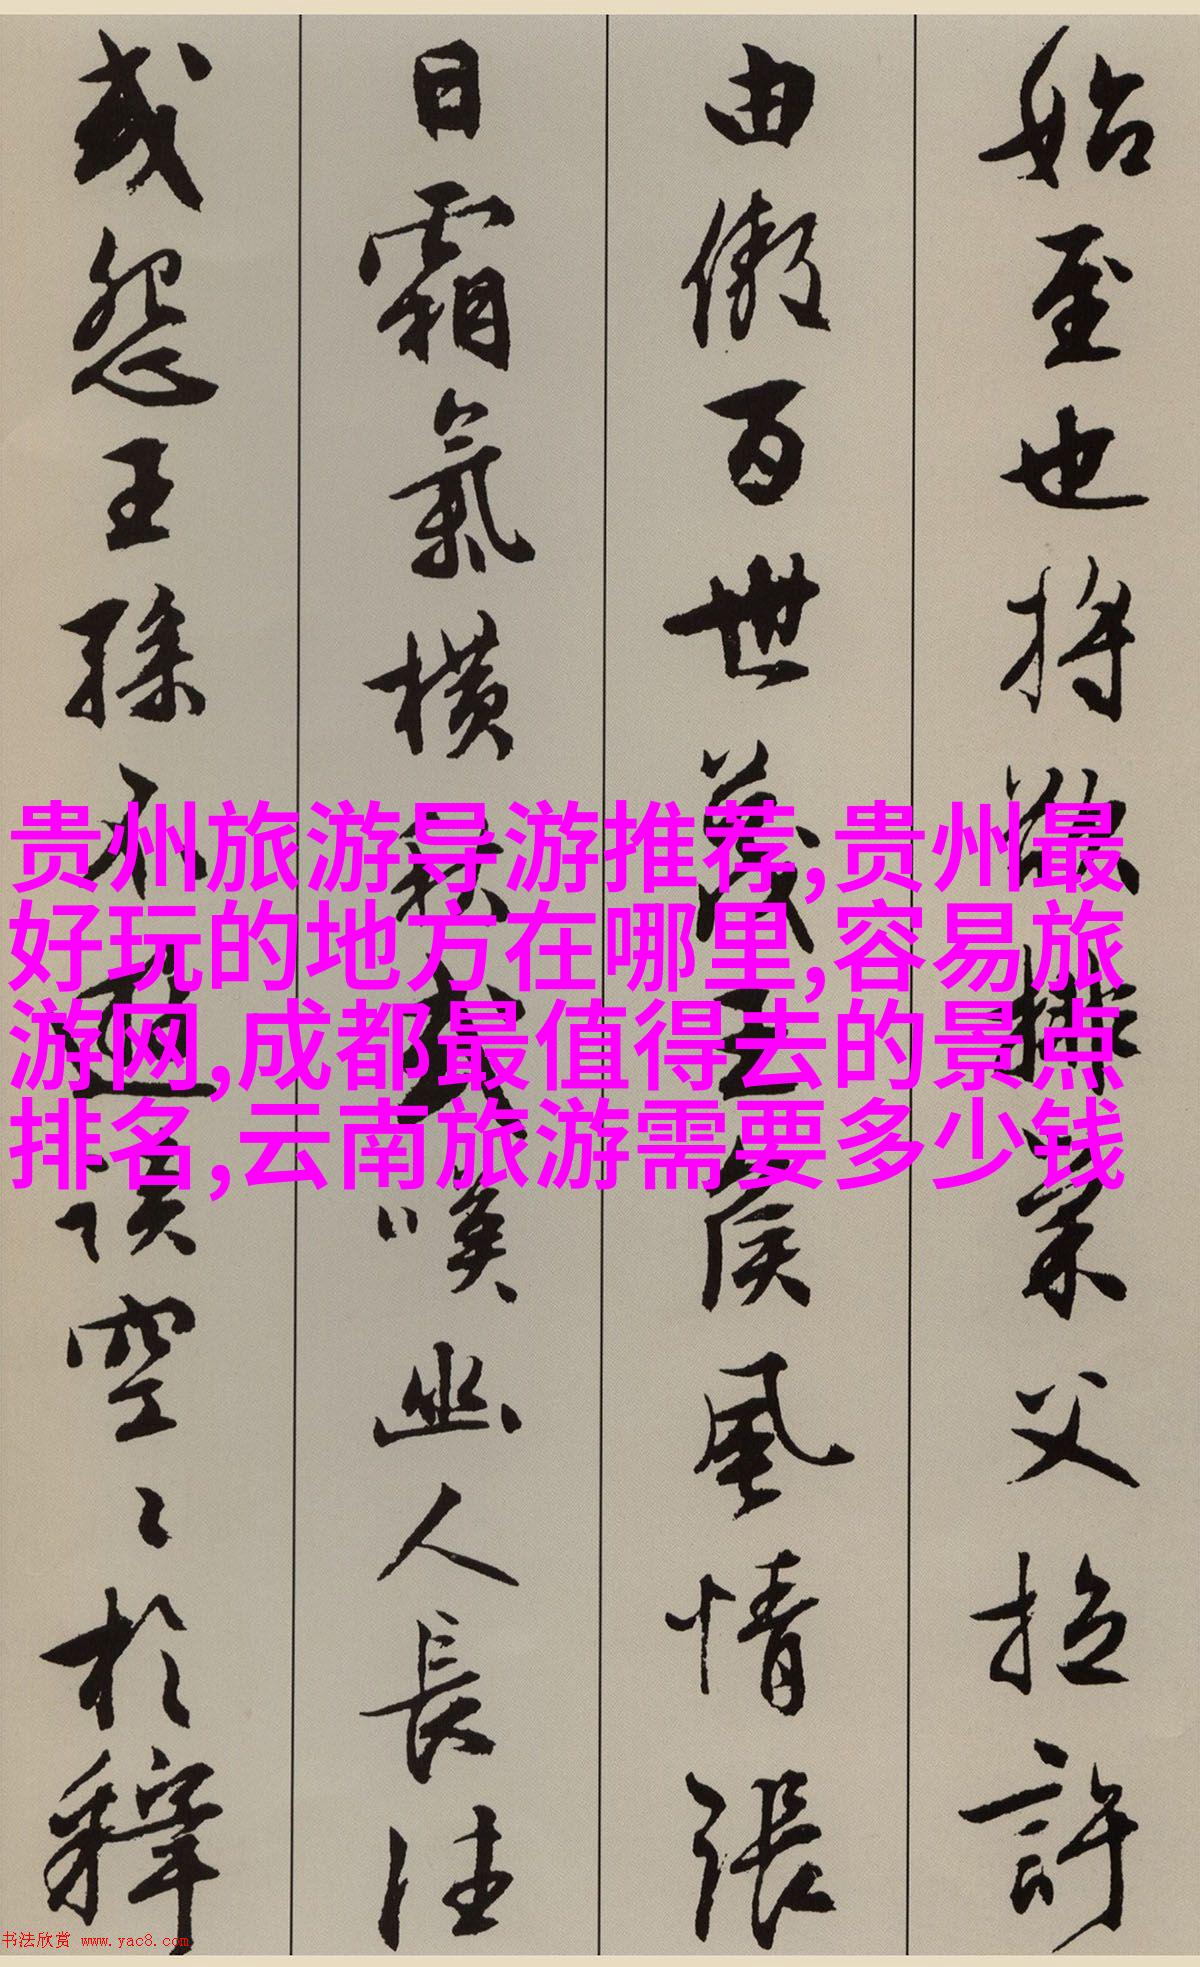 始至也將欲排巢父拉許
由傲百世蔑王侯風情張
日霜氣橫秋或嘆幽人長往
或怨王孫不遊談空〻於釋
贵州旅游导游推荐,贵州最
好玩的地方在哪里,容易旅
游网,成都最值得去的景点
排名,云南旅游需要多少钱
书法欣赏 www.yac8.com